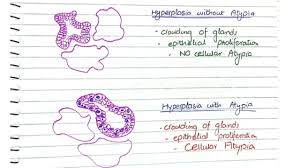 Hyperplasia without Atypia
• clouding of glands
• epithelial proliferation
• NO cellular Atypia
Hyperplasia with Atypia
• clouding of glands
• epithelial proliferation
• Cellular Atypia